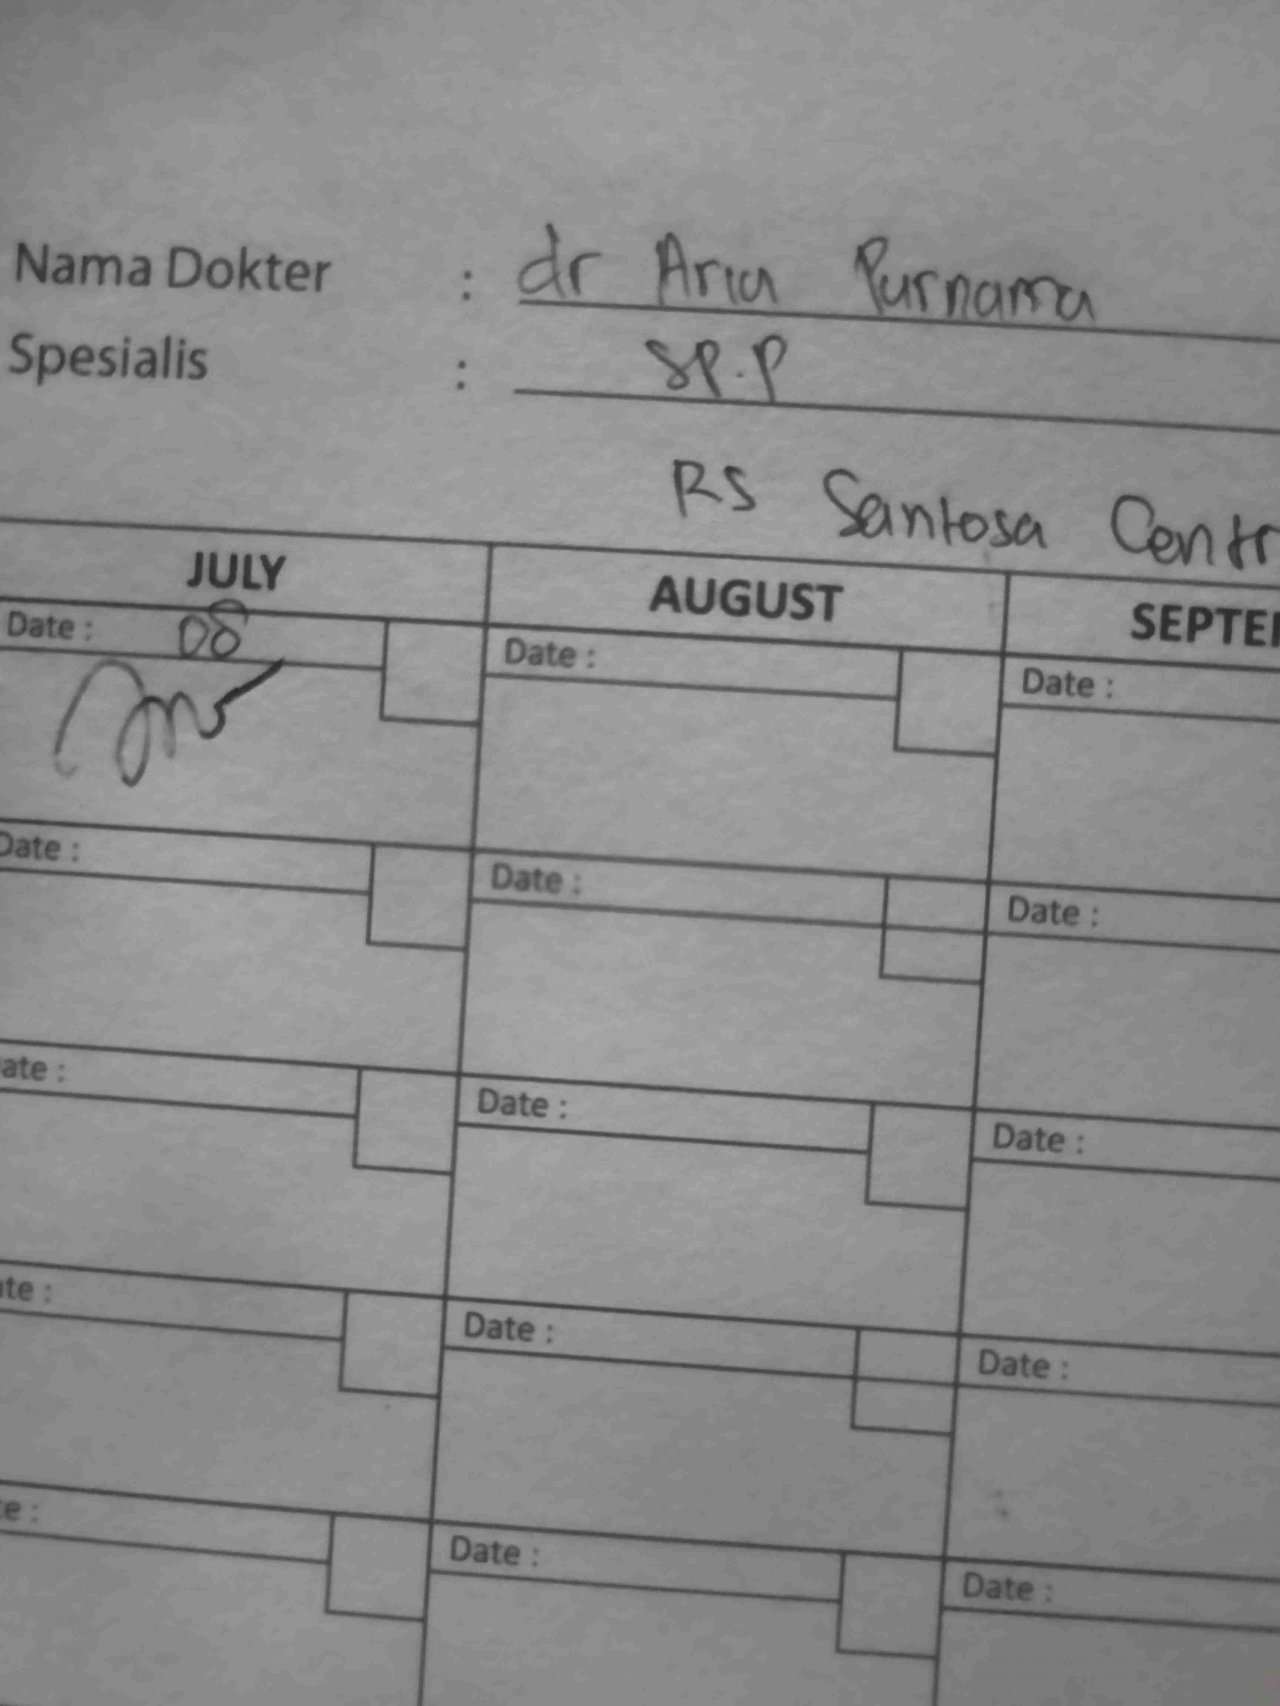 Nama Dokter : dr Aria Purnama
Spesialis : SP.P
RS Santosa Centr
JULY AUGUST SEPTE
Date : 08 Date : Date :
Date : Date : Date :
ate : Date : Date :
te : Date : Date :
e : Date : Date :